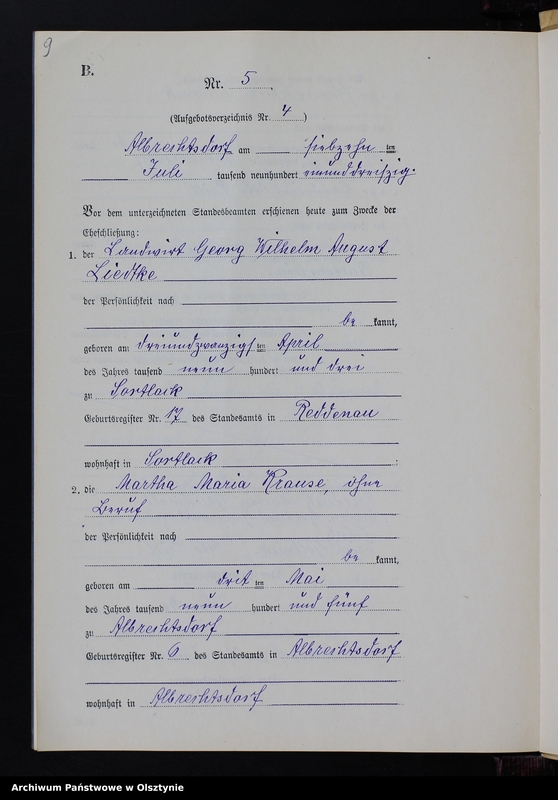 9
B.
Nr. 5.
(Aufgebotsverzeichnis Nr. 4)
Albrechtsdorf am siebzehn ten
Juli tausend neunhundert einunddreißig.
Vor dem unterzeichneten Standesbeamten erschienen heute zum Zwecke der
Eheschließung:
1. der Landwirt Georg Wilhelm August
Liedtke
der Persönlichkeit nach
be kannt,
geboren am dreiundzwanzigsten April
des Jahres tausend neun hundert und drei
zu Sortlack
Geburtsregister Nr. 17 des Standesamts in Reddenau
wohnhaft in Sortlack ;
2. die Martha Maria Krause, ohne
Beruf
der Persönlichkeit nach
be kannt,
geboren am drit ten Mai
des Jahres tausend neun hundert und fünf
zu Albrechtsdorf
Geburtsregister Nr. 6 des Standesamts in Albrechtsdorf
wohnhaft in Albrechtsdorf
Archiwum Państwowe w Olsztynie